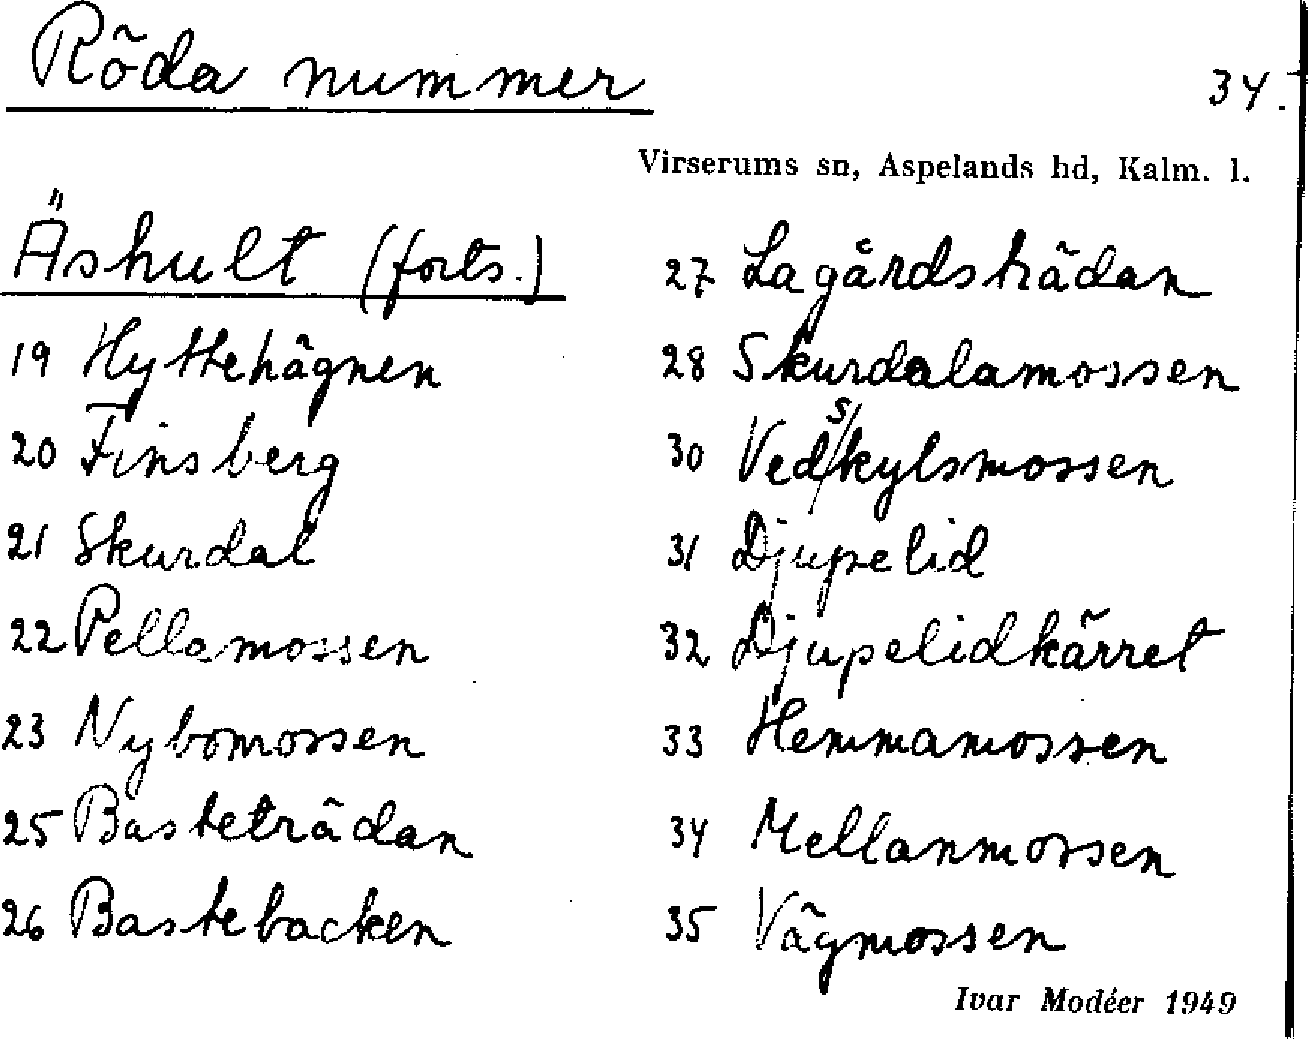 Röda nummer
34.
Virserums sn, Aspelands hd, Kalm. l.
Äshult (forts.)
19 Hyttehägnen
20 Finsberg
21 Skurdal
22 Pellamossen
23 Nybomossen
25 Basteträdan
26 Bastebacken
27 Lagårdsträdan
28 Skurdalamossen
30 Vedskylsmossen
31 Djupelid
32 Djupelidkärret
33 Hemmamossen
34 Mellanmossen
35 Vägmossen
Ivar Modéer 1949